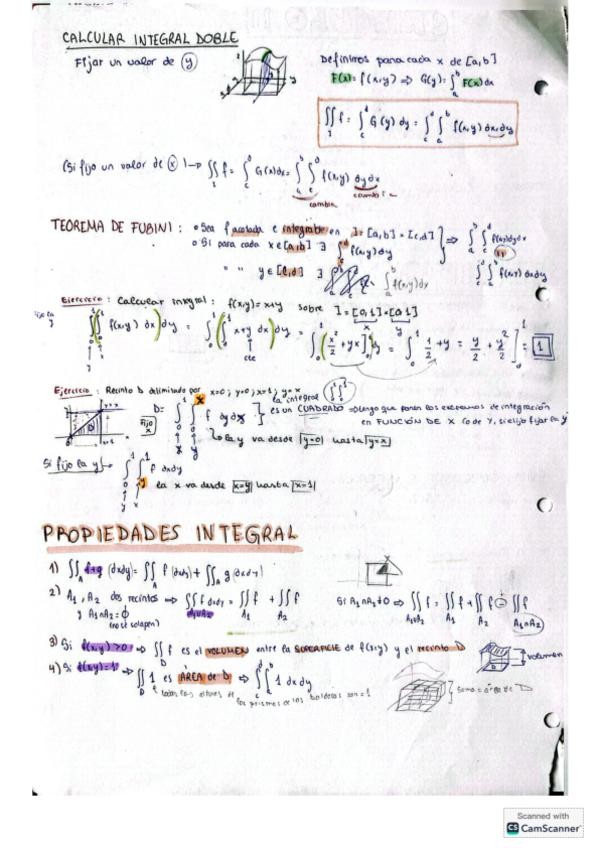 CALCULAR INTEGRAL DOBLE
Fijar un valor de (y)
Definimos para cada x de [a,b]
F(x)= f(x,y) ⇒ G(y)= ∫_a^b F(x)dx
∬_I f = ∫_c^d G(y) dy = ∫_c^d ∫_a^b f(x,y) dx dy
(Si fijo un valor de (x)) → ∬_I f = ∫ G(x)dx = ∫∫ f(x,y) dy dx
cambia
TEOREMA DE FUBINI: • Sea f acotada e integrable en I = [a,b] × [c,d]
• Si para cada x∈[a,b] ∃ ∫_c^d f(x,y)dy
" " y∈[c,d] ∃ ∫_a^b f(x,y)dx
⇒ ∫_a^b ∫_c^d f(x,y)dy dx
∫_c^d ∫_a^b f(x,y) dx dy
Ejercicio: Calcular integral: f(x,y)= x+y sobre I=[0,1]×[0,1]
∫_0^1 (∫_0^1 f(x,y) dx) dy = ∫_0^1 (∫_0^1 x+y dx) dy = ∫_0^1 (x²/2 + yx]_0^1 dy = ∫_0^1 1/2 + y = y/2 + y²/2 ]_0^1 = 1
cte
Ejercicio: Recinto D delimitado por x=0; y=0; x=1; y=x
la integral ∫_0^1 ∫_0^1
Fijo x
D= ∫_0^1 ∫_0^x f dy dx
es un CUADRADO ⇒ luego que poner los extremos de integración
en FUNCIÓN DE X (o de Y, si elijo fijar la y)
la y va desde y=0 hasta y=x
Si fijo la y → ∫_0^1 ∫_y^1 f dx dy
la x va desde x=y hasta x=1
PROPIEDADES INTEGRAL
1) ∬_A f+g (dxdy) = ∬_A f (dxdy) + ∬_A g (dxdy)
2) A₁, A₂ dos recintos ⇒ ∬_{A₁∪A₂} f dxdy = ∬_{A₁} f + ∬_{A₂} f
Si A₁∩A₂≠0 ⇒ ∬_{A₁∪A₂} f = ∬_{A₁} f + ∬_{A₂} f - ∬_{A₁∩A₂} f
y A₁∩A₂=∅
(no se solapen)
3) Si f(x,y)>0 ⇒ ∬_D f es el VOLUMEN entre la SUPERFICIE de f(x,y) y el recinto D
volumen
4) Si f(x,y)=1 ⇒ ∬_D 1 es ÁREA de D ⇒ ∫_c^d ∫_a^b 1 dx dy
todas las alturas de
los prismas de las baldosas son = 1
Suma = área de D
Scanned with
CS CamScanner